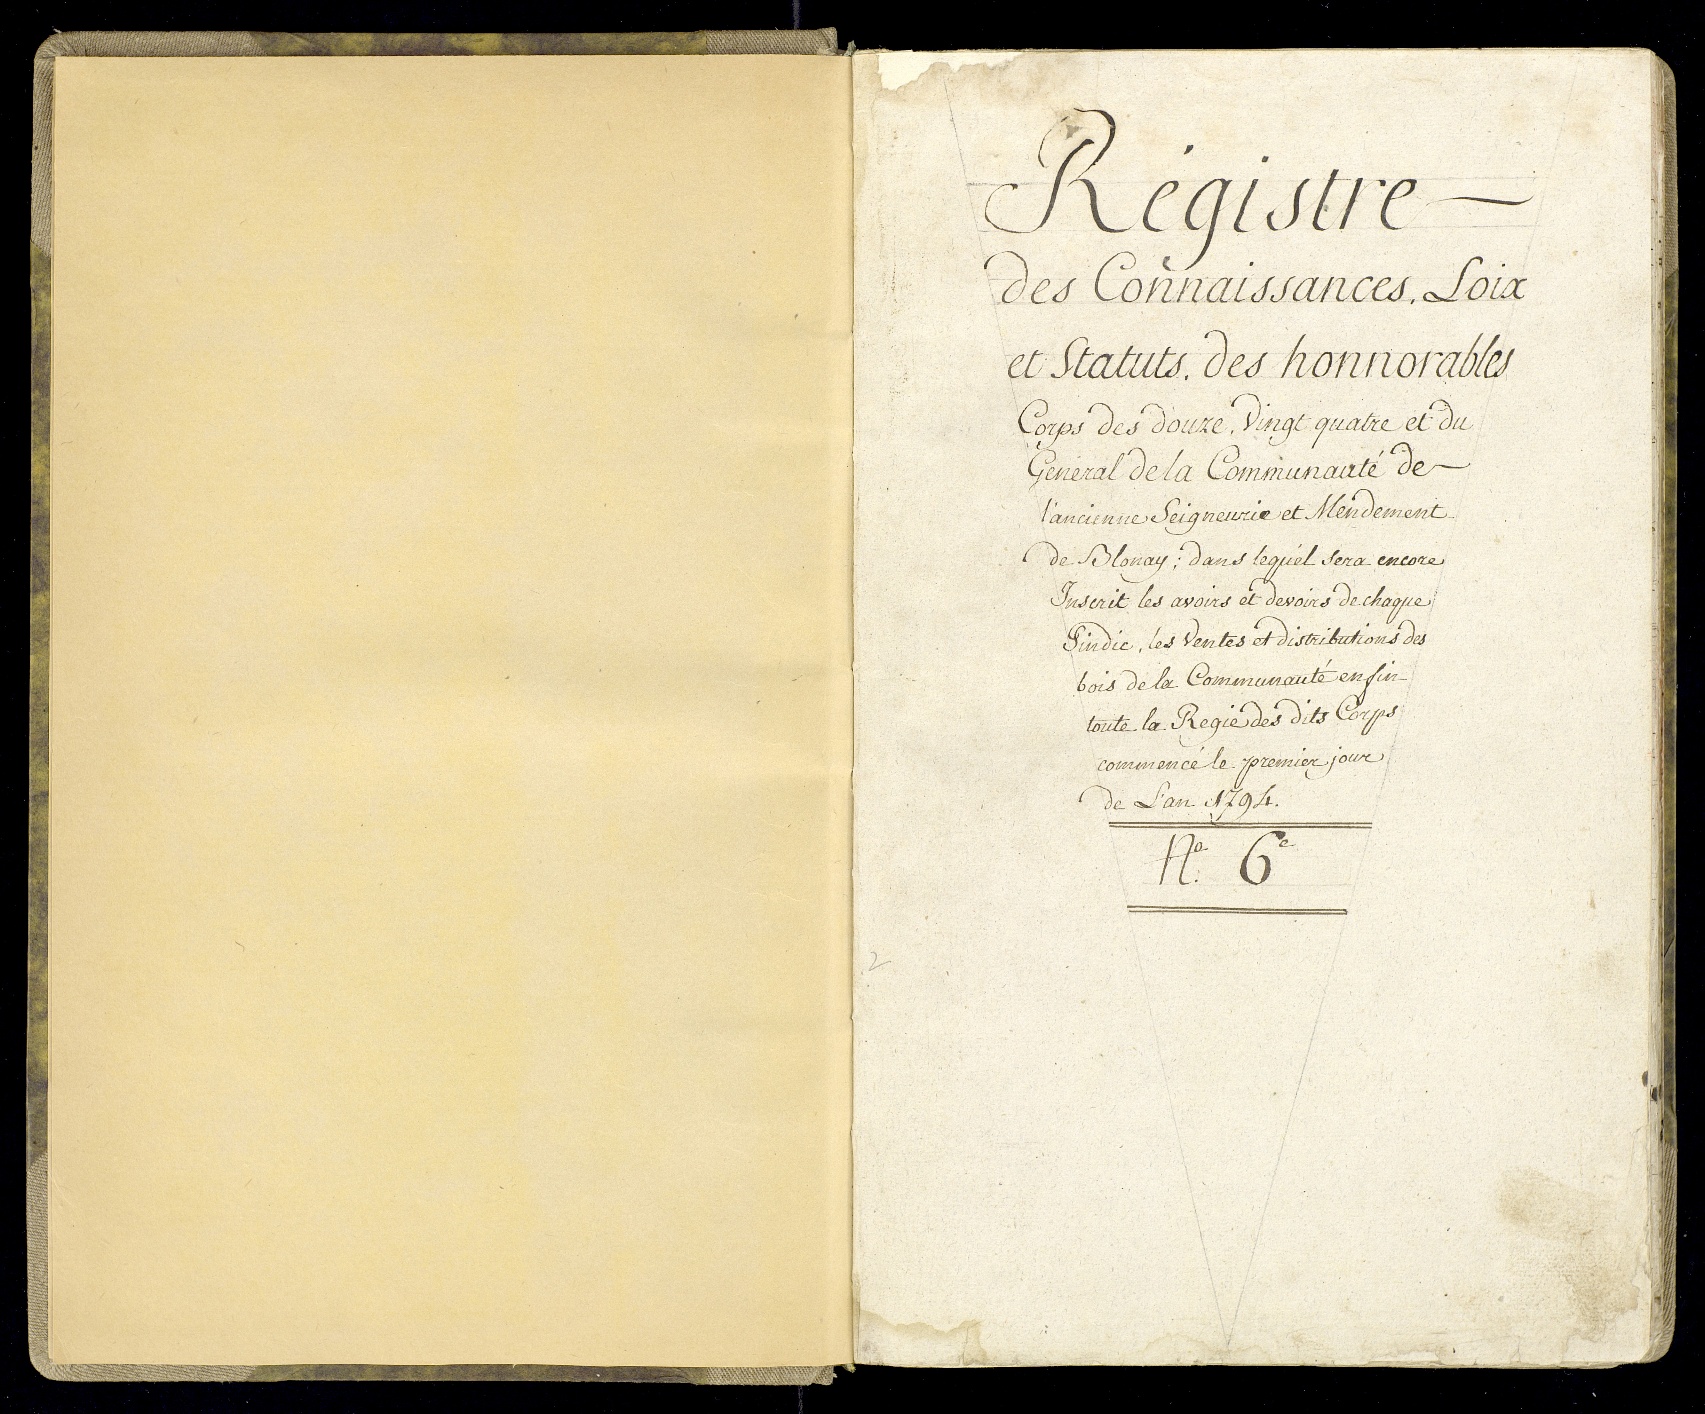 Régistre
des Connaissances, Loix
et Statuts, des honnorables
Corps des douze, Vingt quatre et du
General de la Communauté de
l'ancienne Seigneurie et Mendement
de Blonay; dans lequel sera encore
Inscrit les avoirs et devoirs de chaque
Sindic, les Ventes et distributions des
bois de la Communauté enfin
toute la Regie des dits Corps
commencé le premier jour
de L'an 1794.
No. 6e
2